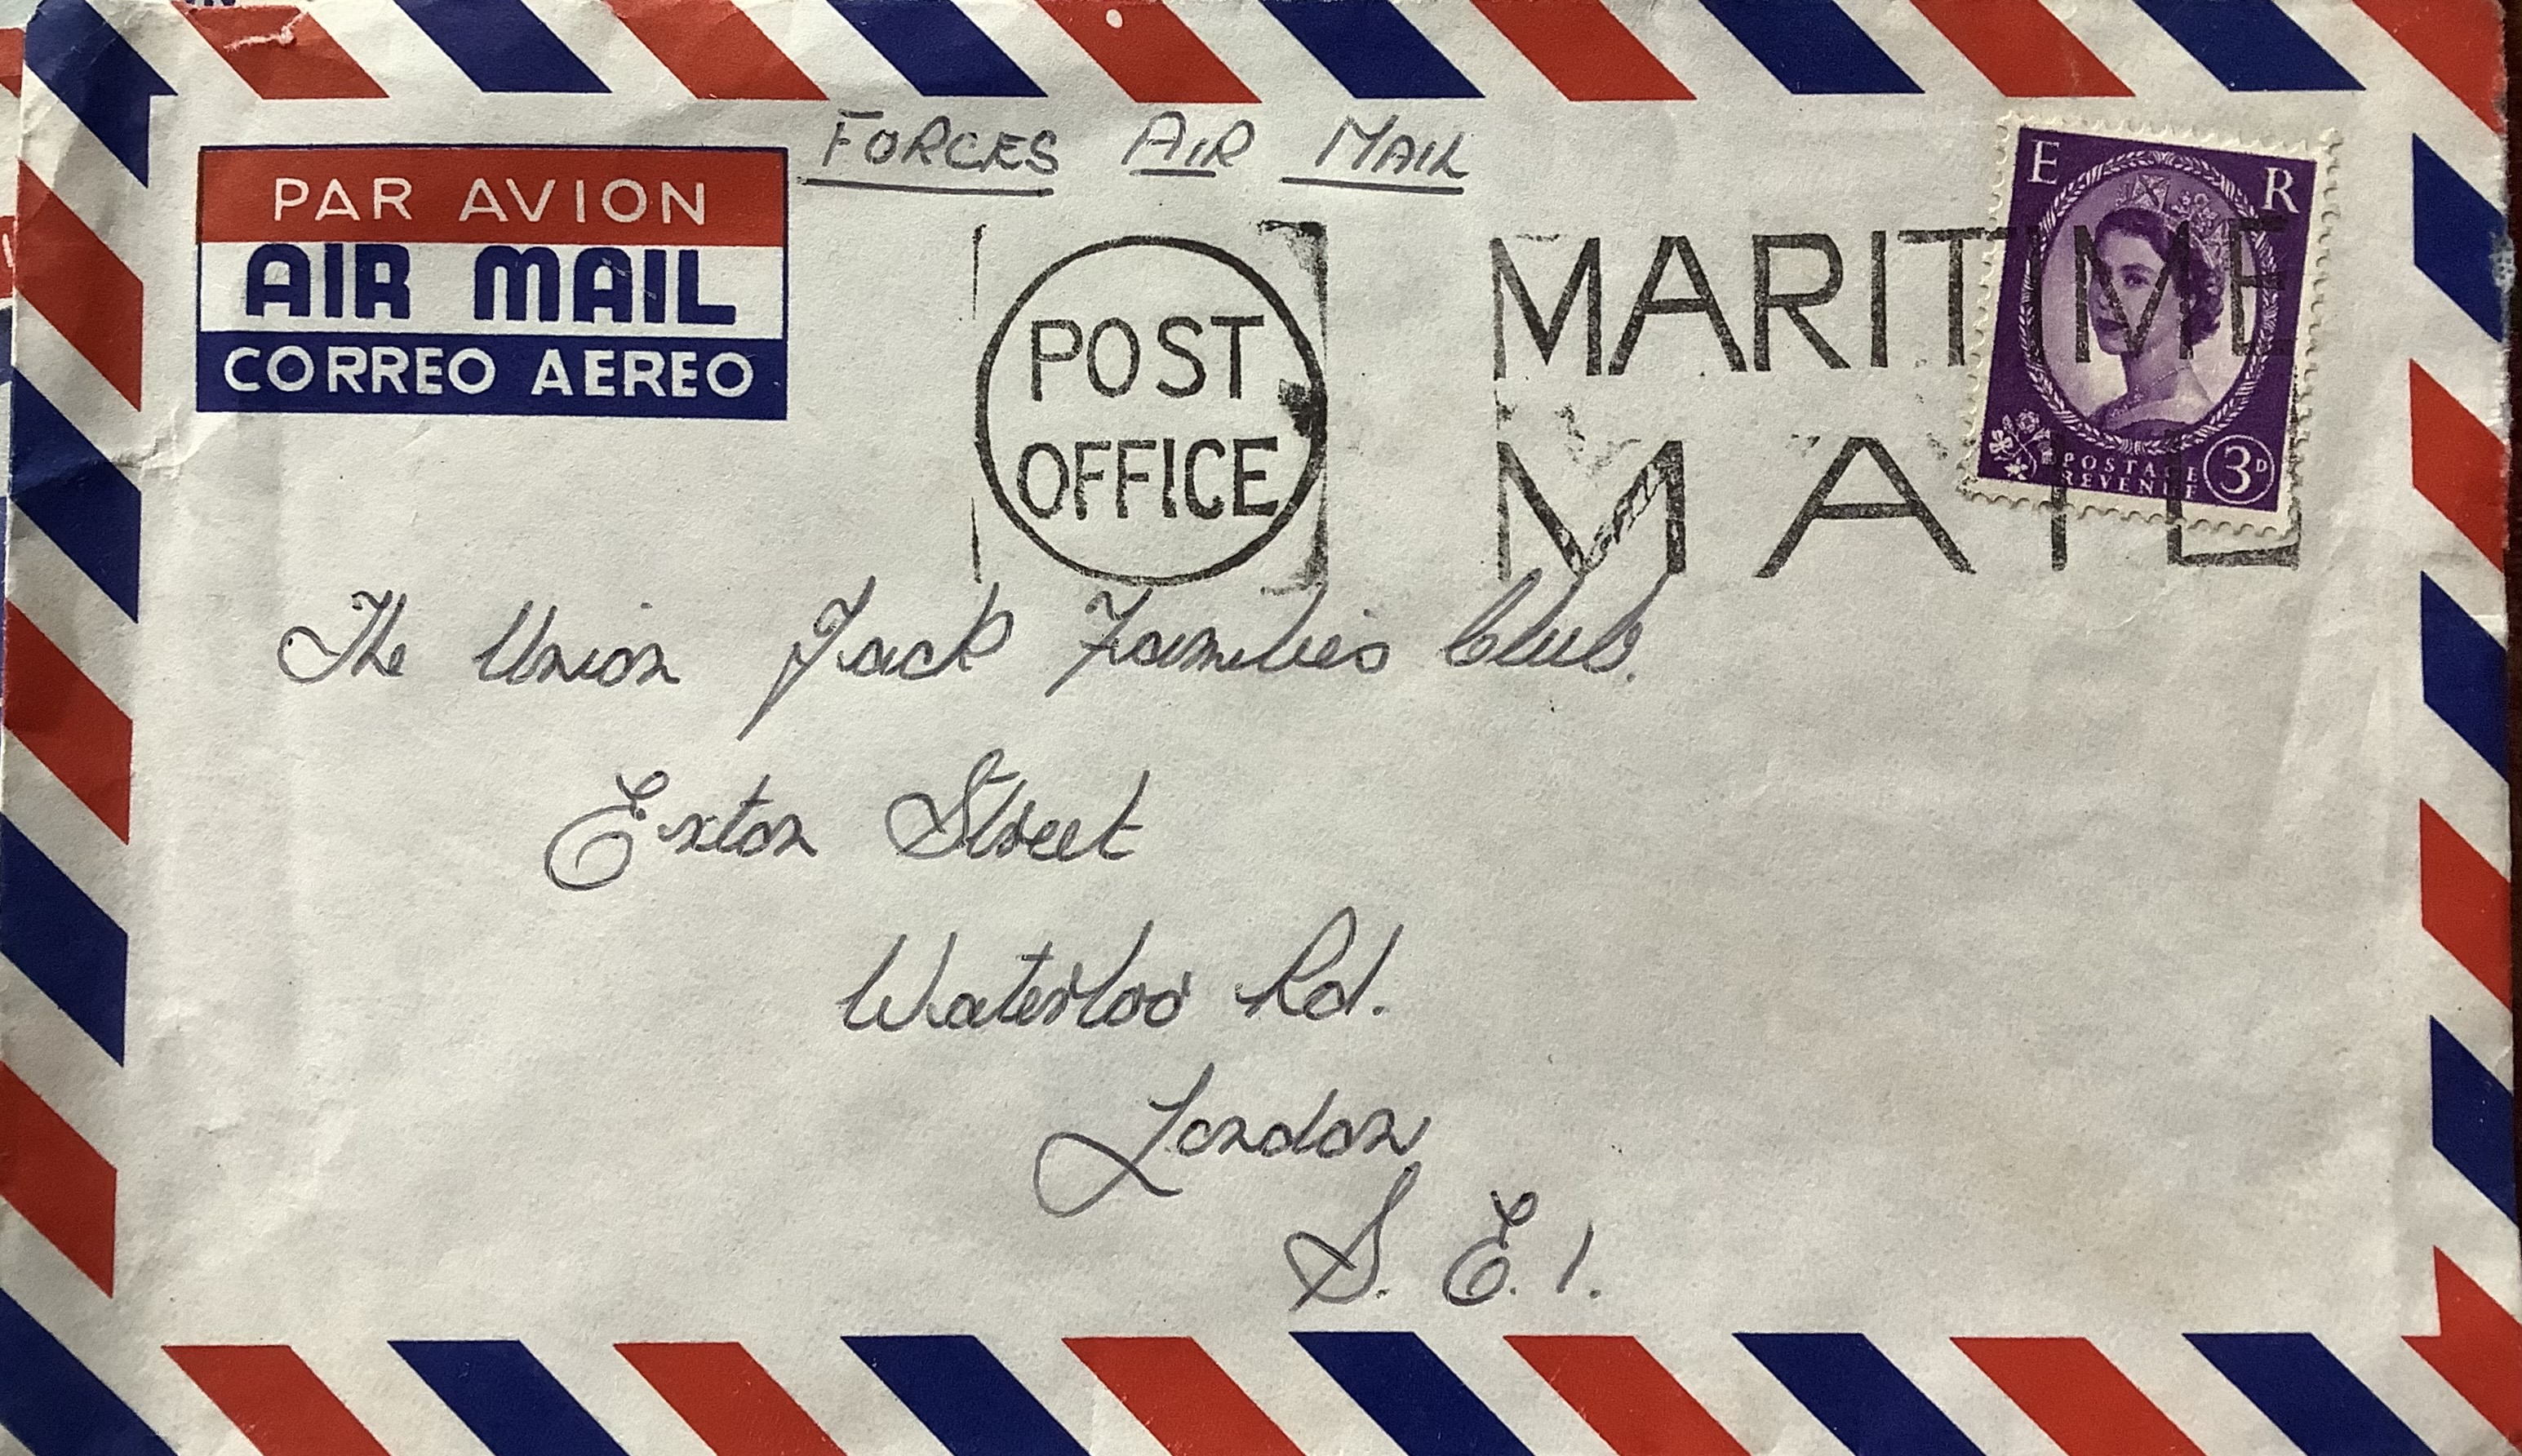 FORCES AIR MAIL
PAR AVION
AIR MAIL
CORREO AEREO
POST
OFFICE
MARITIME
MAIL
E R
POSTAGE
REVENUE
3D
The Union Jack Families Club.
Exton Street
Waterloo Rd.
London
S. E. 1.